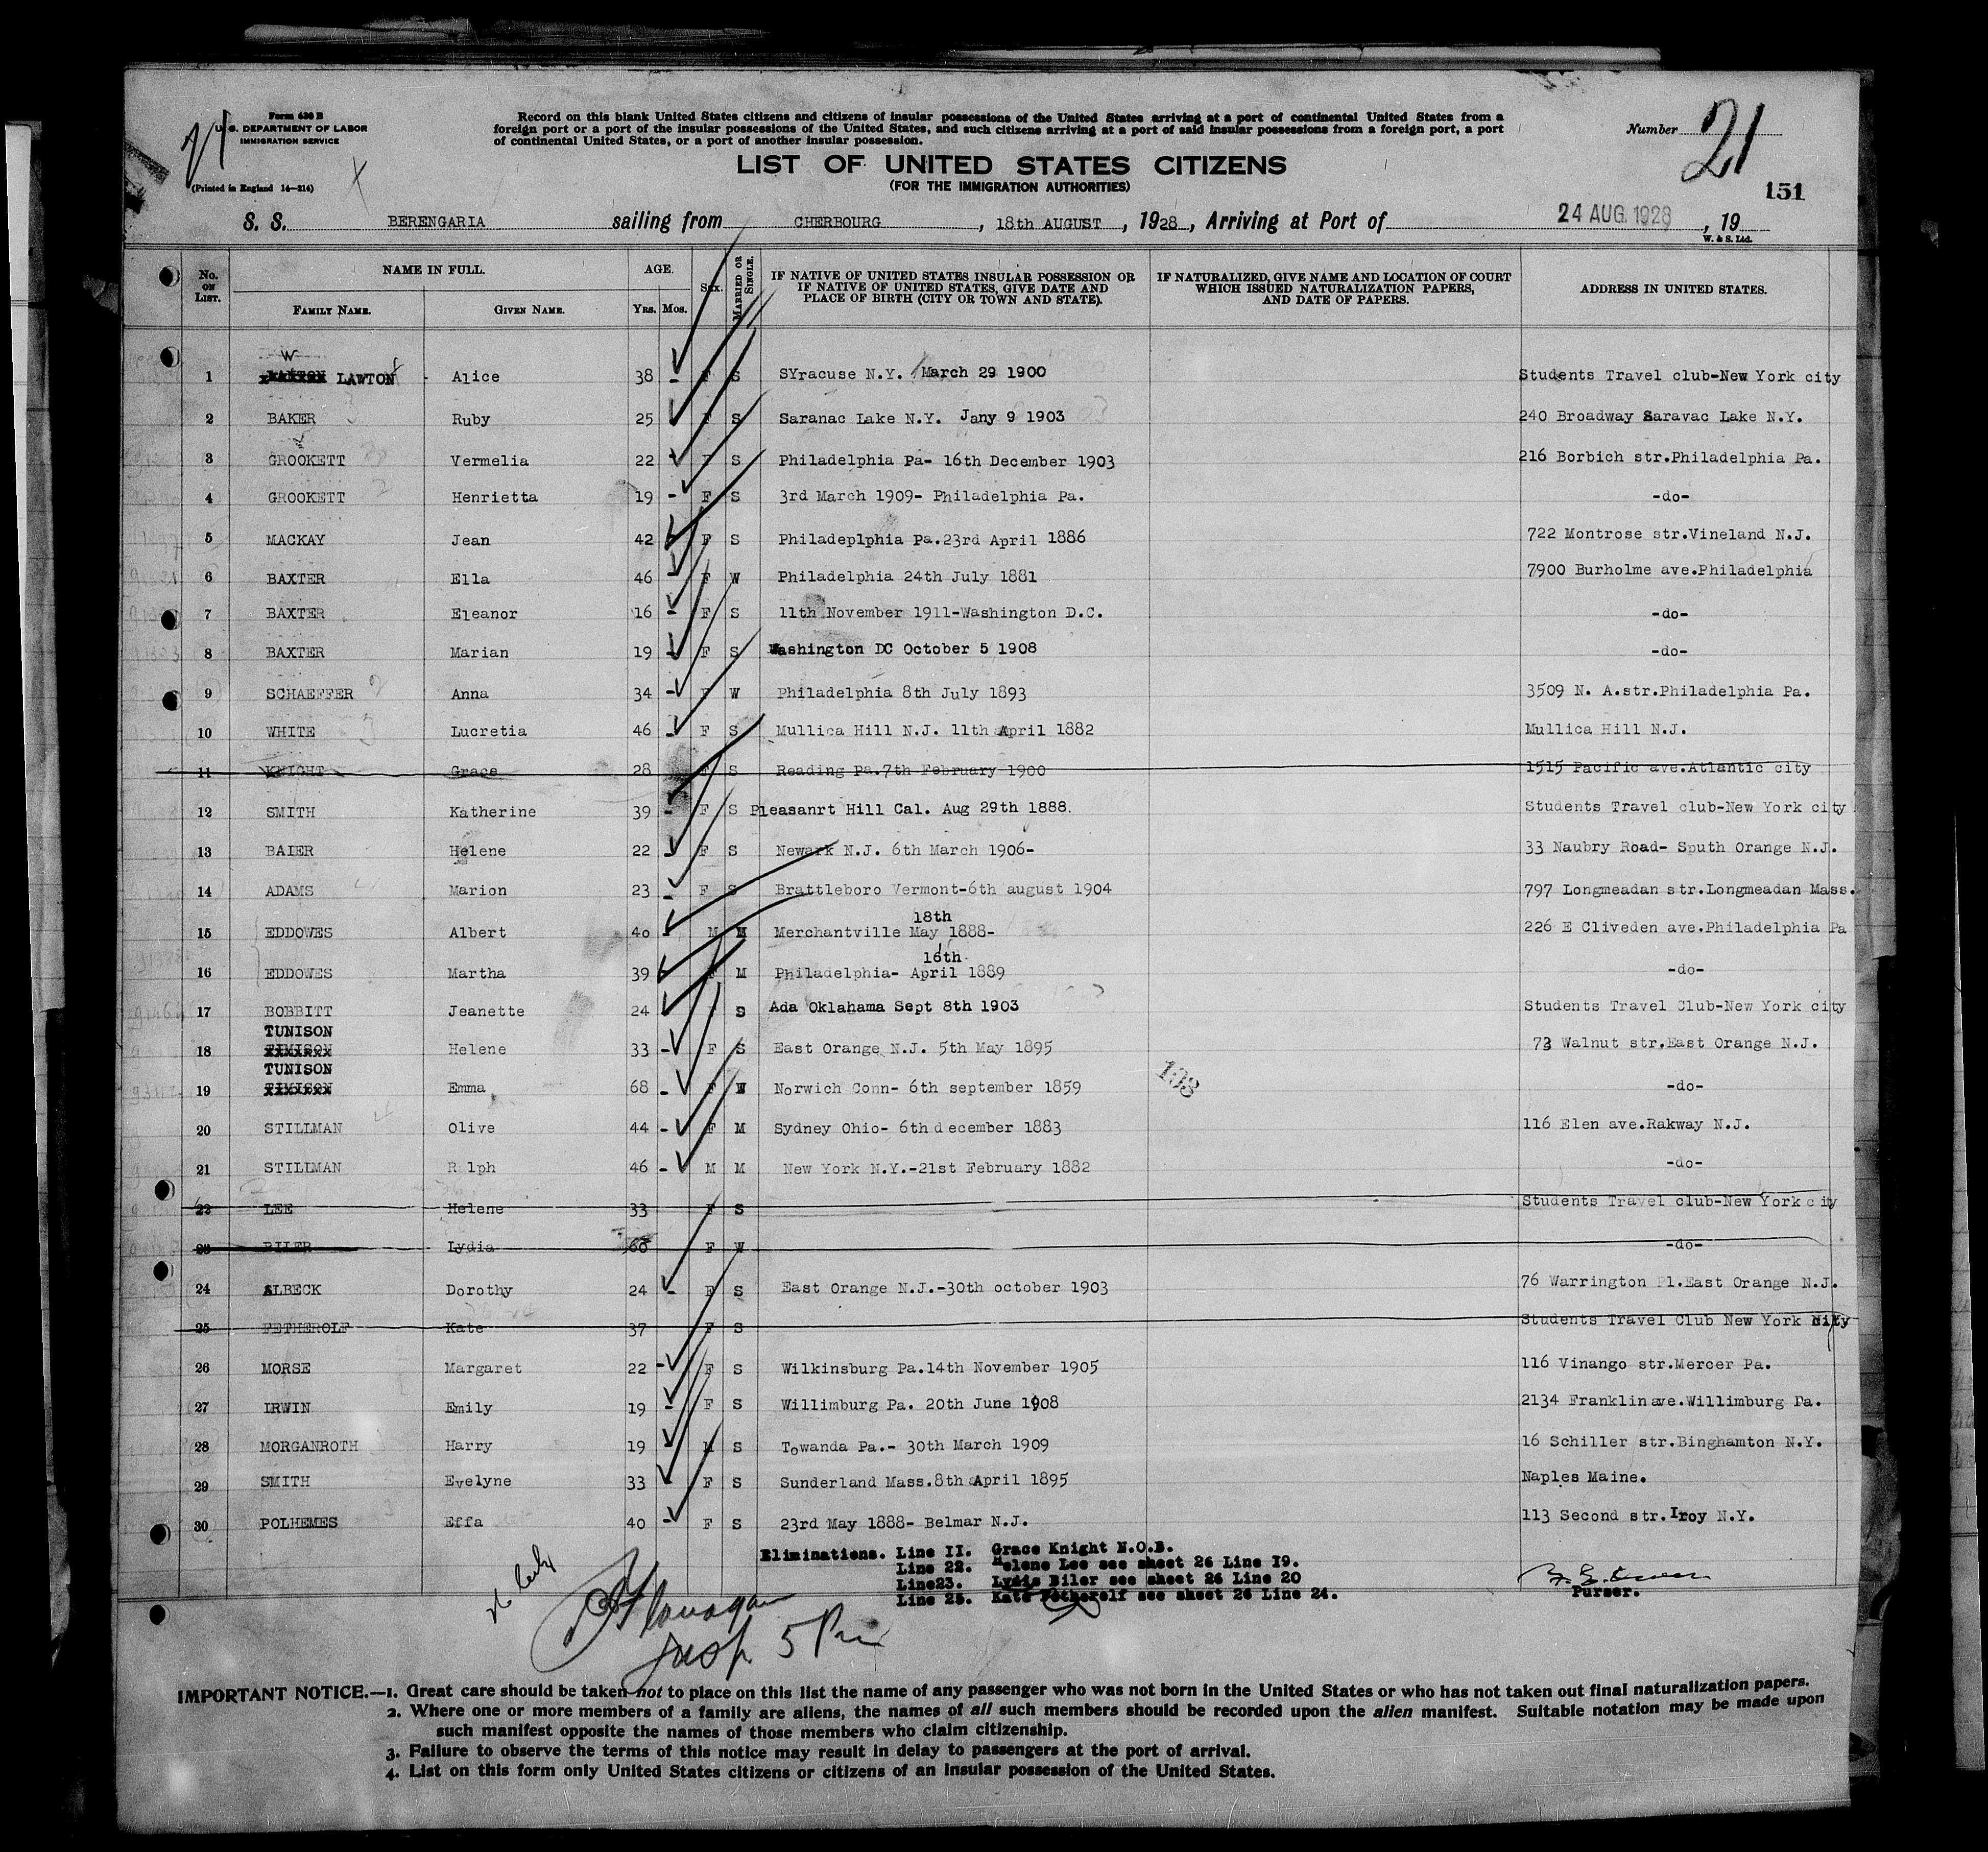 Form 630 B
U. S. DEPARTMENT OF LABOR
IMMIGRATION SERVICE
(Printed in England 14—214)
Record on this blank United States citizens and citizens of insular possessions of the United States arriving at a port of continental United States from a
foreign port or a port of the insular possessions of the United States, and such citizens arriving at a port of said insular possessions from a foreign port, a port
of continental United States, or a port of another insular possession.
Number 21
LIST OF UNITED STATES CITIZENS
(FOR THE IMMIGRATION AUTHORITIES)
151
S. S. BERENGARIA sailing from CHERBOURG , 18th AUGUST , 1928 , Arriving at Port of 24 AUG. 1928 , 19
W. & S. Ltd.
No. ON LIST. NAME IN FULL. FAMILY NAME. GIVEN NAME. AGE. YRS. MOS. SEX. MARRIED OR SINGLE. IF NATIVE OF UNITED STATES INSULAR POSSESSION OR IF NATIVE OF UNITED STATES, GIVE DATE AND PLACE OF BIRTH (CITY OR TOWN AND STATE). IF NATURALIZED, GIVE NAME AND LOCATION OF COURT WHICH ISSUED NATURALIZATION PAPERS, AND DATE OF PAPERS. ADDRESS IN UNITED STATES.
1 LAWTON Alice 38 - F S SYracuse N.Y. March 29 1900 Students Travel club-New York city
2 BAKER Ruby 25 F S Saranac Lake N.Y. Jany 9 1903 240 Broadway Saravac Lake N.Y.
3 GROOKETT Vermelia 22 F S Philadelphia Pa- 16th December 1903 216 Borbich str.Philadelphia Pa.
4 GROOKETT Henrietta 19 - F S 3rd March 1909- Philadelphia Pa. -do-
5 MACKAY Jean 42 F S Philadeplphia Pa.23rd April 1886 722 Montrose str.Vineland N.J.
6 BAXTER Ella 46 - F W Philadelphia 24th July 1881 7900 Burholme ave.Philadelphia
7 BAXTER Eleanor 16 - F S 11th November 1911-Washington D.C. -do-
8 BAXTER Marian 19 - F S Washington DC October 5 1908 -do-
9 SCHAEFFER Anna 34 - F W Philadelphia 8th July 1893 3509 N. A.str.Philadelphia Pa.
10 WHITE Lucretia 46 - F S Mullica Hill N.J. 11th April 1882 Mullica Hill N.J.
11 KNIGHT Grace 28 F S Reading Pa.7th February 1900 1515 Pacific ave.Atlantic city
12 SMITH Katherine 39 - F S Pleasanrt Hill Cal. Aug 29th 1888. Students Travel club-New York city
13 BAIER Helene 22 - F S Newark N.J. 6th March 1906- 33 Naubry Road- Sputh Orange N.J.
14 ADAMS Marion 23 - F S Brattleboro Vermont-6th august 1904 797 Longmeadan str.Longmeadan Mass.
18th
15 EDDOWES Albert 40 M M Merchantville May 1888- 226 E Cliveden ave.Philadelphia Pa
16th
16 EDDOWES Martha 39 F M Philadelphia- April 1889 -do-
17 BOBBITT Jeanette 24 F S Ada Oklahoma Sept 8th 1903 Students Travel Club-New York city
TUNISON
18 TIMISON Helene 33 - F S East Orange N.J. 5th May 1895 73 Walnut str.East Orange N.J.
TUNISON
19 TIMISON Emma 68 - F W Norwich Conn- 6th september 1859 -do-
198
20 STILLMAN Olive 44 - F M Sydney Ohio- 6th december 1883 116 Elen ave.Rakway N.J.
21 STILLMAN Ralph 46 - M M New York N.Y.-21st February 1882 -do-
22 LEE Helene 33 F S Students Travel club-New York city
23 BILER Lydia 60 F W -do-
24 ALBECK Dorothy 24 - F S East Orange N.J.-30th october 1903 76 Warrington Pl.East Orange N.J.
25 FETHEROLF Kate 37 F S Students Travel Club New York city
26 MORSE Margaret 22 - F S Wilkinsburg Pa.14th November 1905 116 Vinango str.Mercer Pa.
27 IRWIN Emily 19 - F S Willimburg Pa. 20th June 1908 2134 Franklin ave.Willimburg Pa.
28 MORGANROTH Harry 19 - M S Towanda Pa.- 30th March 1909 16 Schiller str.Binghamton N.Y.
29 SMITH Evelyne 33 F S Sunderland Mass.8th April 1895 Naples Maine.
30 POLHEMES Effa 40 - F S 23rd May 1888- Belmar N.J. 113 Second str.Troy N.Y.
Eliminations. Line II. Grace Knight N.O.B.
Line 22. Helene Lee see sheet 26 Line I9.
Line23. Lydia Biler see sheet 26 Line 20
Line 25. Kate Fetherolf see sheet 26 Line 24.
Purser.
Flanagan
Insp.
IMPORTANT NOTICE.—1. Great care should be taken not to place on this list the name of any passenger who was not born in the United States or who has not taken out final naturalization papers.
2. Where one or more members of a family are aliens, the names of all such members should be recorded upon the alien manifest. Suitable notation may be made upon
such manifest opposite the names of those members who claim citizenship.
3. Failure to observe the terms of this notice may result in delay to passengers at the port of arrival.
4. List on this form only United States citizens or citizens of an insular possession of the United States.